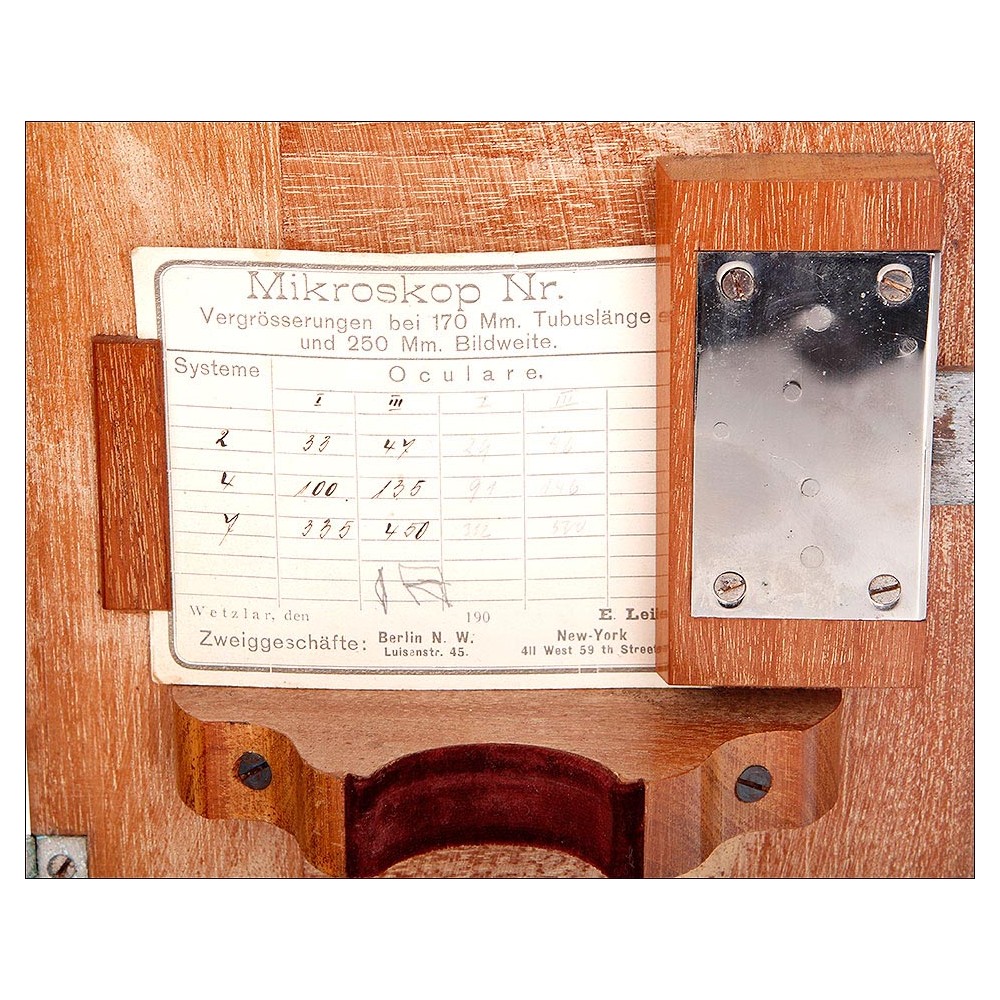 Mikroskop Nr.
Vergrösserungen bei 170 Mm. Tubuslänge
und 250 Mm. Bildweite.
Systeme Oculare.
I III I III
2 33 47
4 100. 135 91
7 335 450
Wetzlar, den 190 E. Lei
Zweiggeschäfte: Berlin N. W. New-York
Luisenstr. 45. 411 West 59 th Street